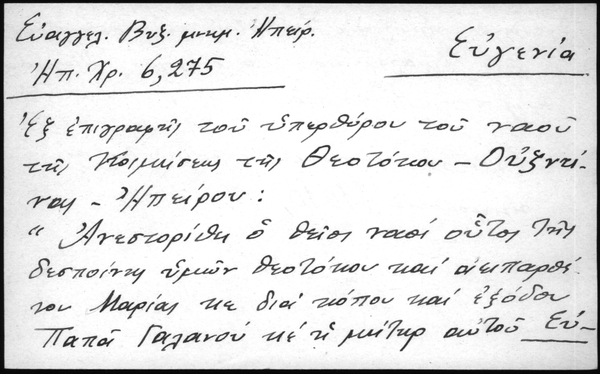 Εὐαγγελ. Βυζ. μνημ. Ἠπείρ.
Ἠπ. Χρ. 6,275
Εὐγενία
Ἐξ ἐπιγραφῆς τοῦ ὑπερθύρου τοῦ ναοῦ
τῆς Κοιμήσεως τῆς Θεοτόκου – Οὐζντί-
νας – Ἠπείρου :
“ Ἀνεστορίθη ὁ θεῖος ναός οὗτος τῆς
δεσποίνης ὑμῶν θεοτόκου καί ἀειπαρθέ-
νου Μαρίας κε διά κόπου καί ἐξόδου
Παπᾶ Γαλανοῦ κέ ἡ μήτηρ αὐτοῦ Εὐ-